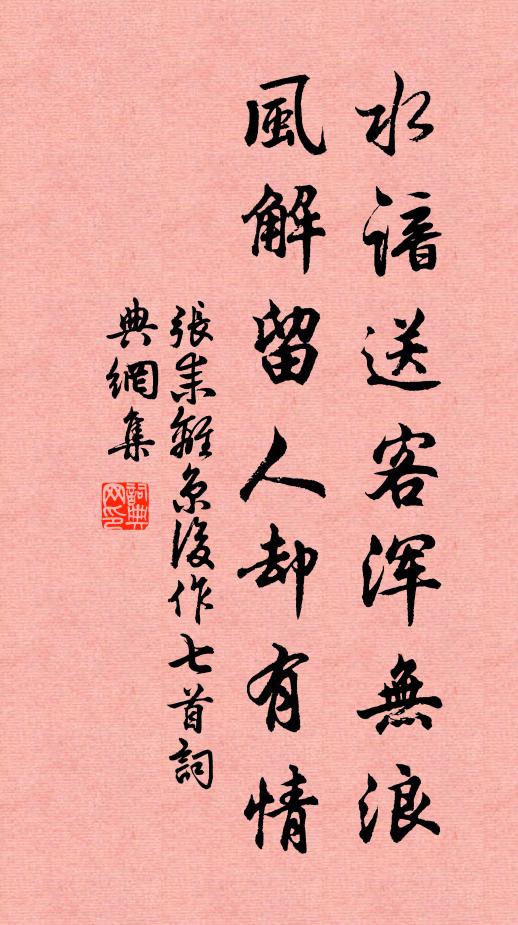 水諳送客浑無浪
風解留人却有情
張耒離京後作七首詞
典網集
詞典网印